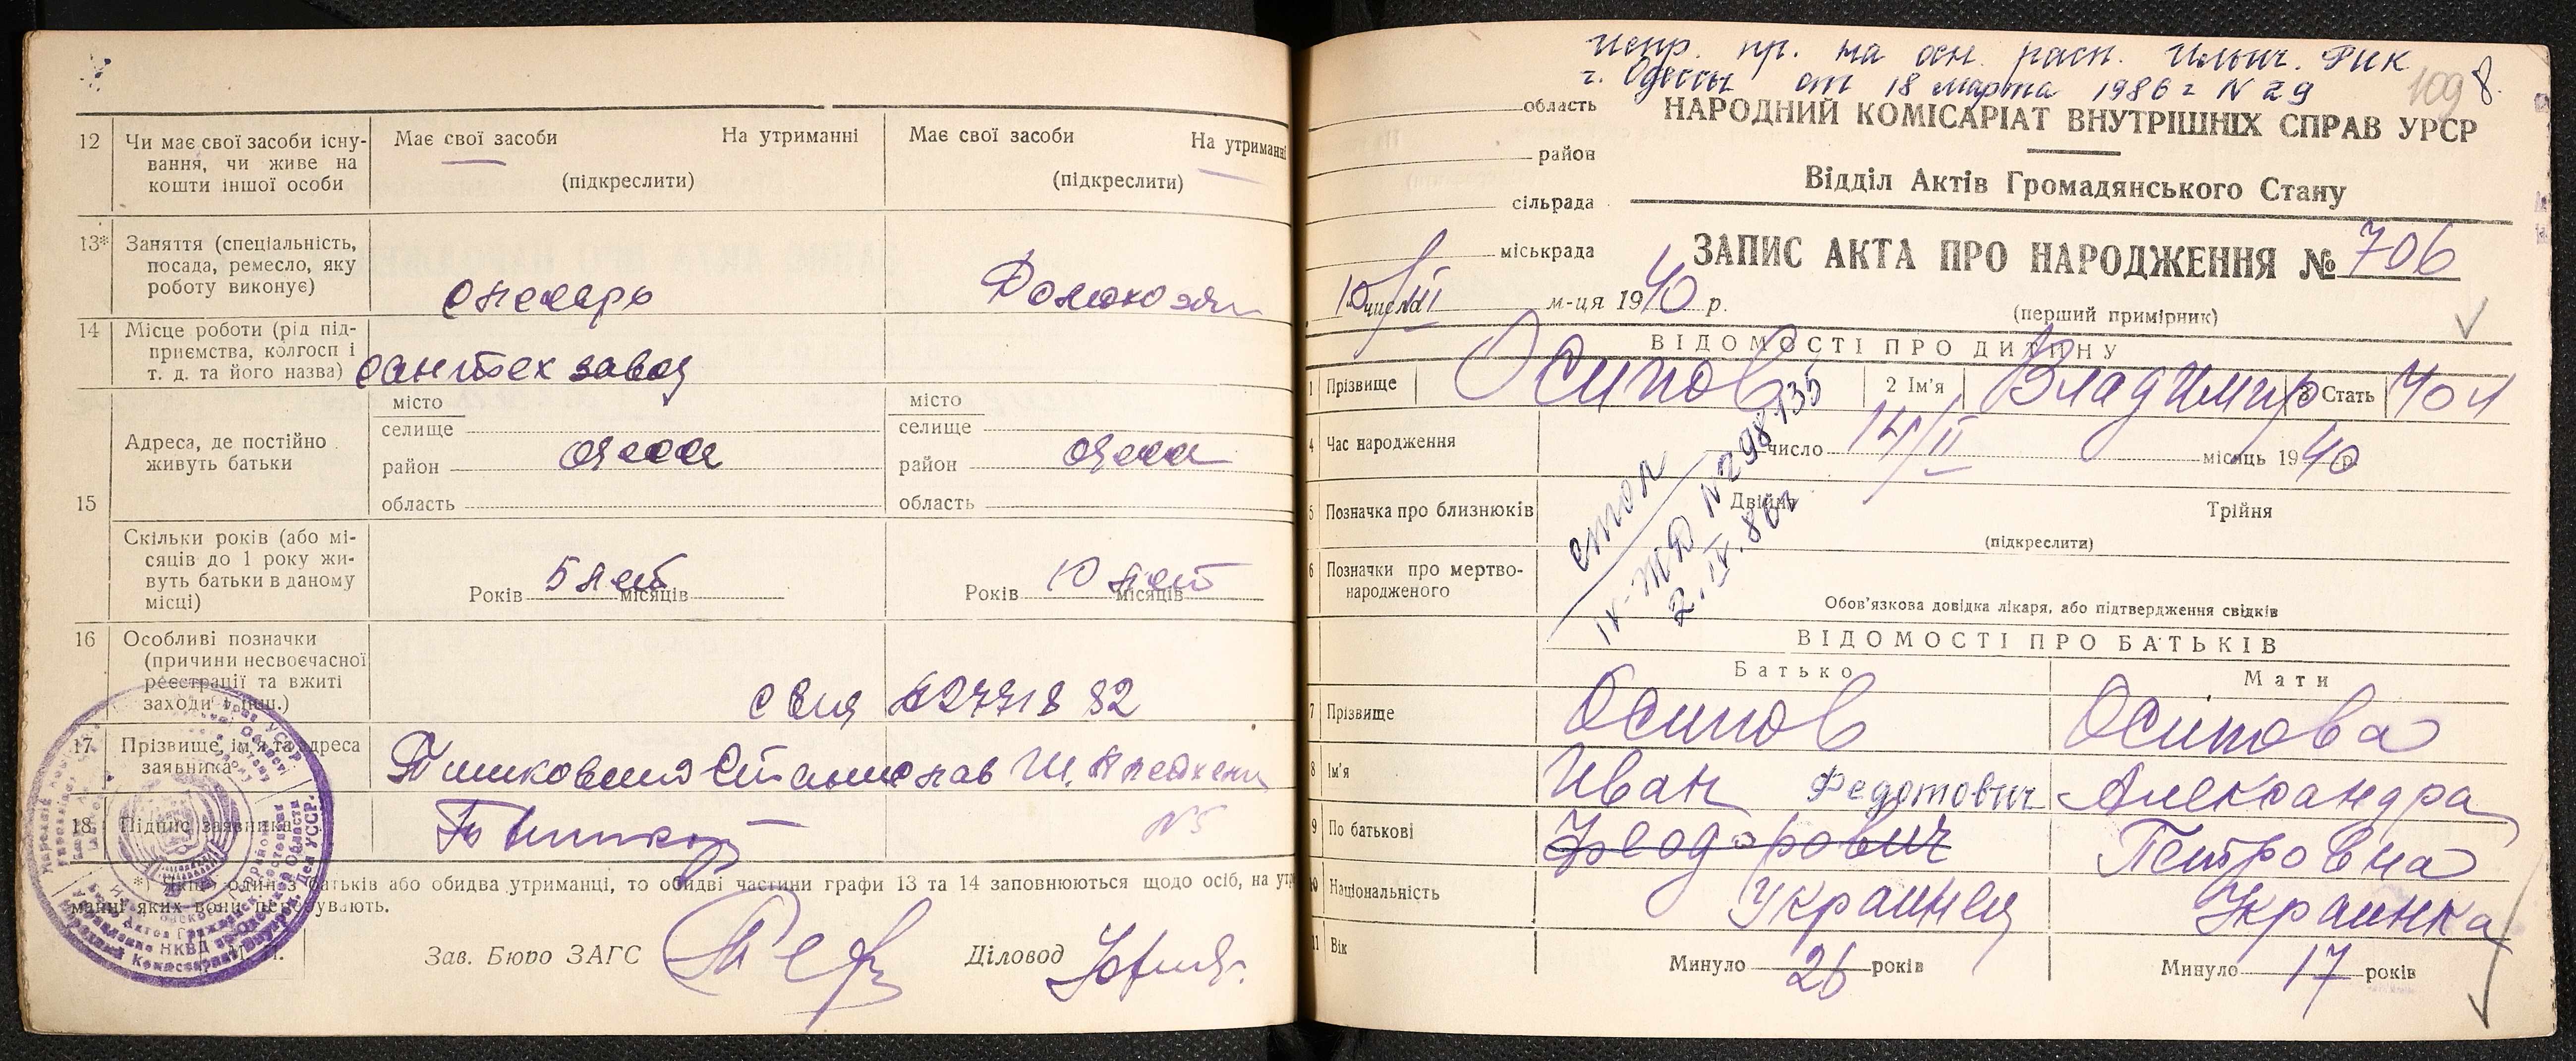 12 Чи має свої засоби існу-
вання, чи живе на
кошти іншої особи
Має свої засоби На утриманні
(підкреслити)
Має свої засоби На утриманні
(підкреслити)
13* Заняття (спеціальність,
посада, ремесло, яку
роботу виконує)
слесарь
Домохозяй
14 Місце роботи (рід під-
приємства, колгосп і
т. д. та його назва)
Сантех завод
15
Адреса, де постійно
живуть батьки
місто
селище
район Одесса
область
місто
селище
район Одесса
область
Скільки років (або мі-
сяців до 1 року жи-
вуть батьки в даному
місці)
Років 5 лет місяців
Років 10 лет місяців
16 Особливі позначки
(причини несвоєчасної
реєстрації та вжиті
заходи і інш.)
17 Прізвище, ім'я та адреса
заявника
Станислав
№5
18 Підпис заявника
*) Якщо один з батьків або обидва утриманці, то обидві частини графи 13 та 14 заповнюються щодо осіб, на утри-
манні яких вони перебувають.
М. П.
Зав. Бюро ЗАГС
Діловод
испр. пр. на осн. расп. Ильич. РИК
г. Одессы от 18 марта 1986 г N 29
109 8.
область
район
сільрада
міськрада
НАРОДНИЙ КОМІСАРІАТ ВНУТРІШНІХ СПРАВ УРСР
Відділ Актів Громадянського Стану
ЗАПИС АКТА ПРО НАРОДЖЕННЯ № 706
10/III числа м-ця 1940 р.
(перший примірник)
ВІДОМОСТІ ПРО ДИТИНУ
1 Прізвище Осипов 2 Ім'я Владимир 3 Стать
4 Час народження число 14/II місяць 1940 р.
5 Позначка про близнюків Двійня Трійня
(підкреслити)
IV-ЖД N 298135
2.IV.86г
6 Позначки про мертво-
народженого
Обов'язкова довідка лікаря, або підтвердження свідків
ВІДОМОСТІ ПРО БАТЬКІВ
Батько Мати
7 Прізвище Осипов Осипова
8 Ім'я Иван Федотович Александра
9 По батькові Феодорович Петровна
10 Національність Украинец Украинка
11 Вік Минуло 26 років Минуло 17 років